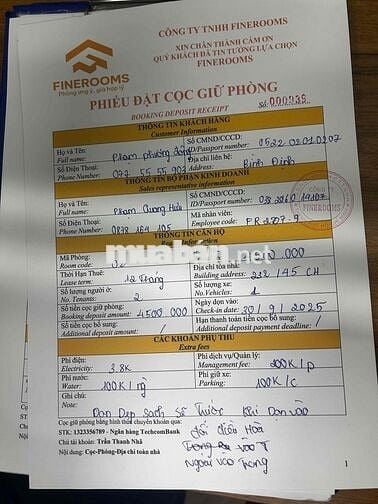 FINEROOMS
Phòng ưng ý, giá hợp lý
CÔNG TY TNHH FINEROOMS
XIN CHÂN THÀNH CẢM ƠN
QUÝ KHÁCH ĐÃ TIN TƯỞNG LỰA CHỌN
FINEROOMS
PHIẾU ĐẶT CỌC GIỮ PHÒNG
BOOKING DEPOSIT RECEIPT
Số: 000935
THÔNG TIN KHÁCH HÀNG
Customer Information
Họ và Tên: Phạm phương
Full name:
Số CMND/CCCD:
ID/Passport number:
Số Điện Thoại:
Phone Number:
Địa chỉ liên hệ: Bình Định
Address:
THÔNG TIN BỘ PHẬN KINH DOANH
Sales representative information
Họ và Tên: Phạm Quang
Full name:
Số CMND/CCCD:
ID/Passport number:
Số Điện Thoại:
Phone Number:
Mã nhân viên:
Employee code:
FINEROOMS
THÔNG TIN CĂN HỘ
Information
muaban.net
Mã Phòng:
Room code:
Giá
000.000
Thời Hạn Thuê: 12 tháng
Lease term:
Địa chỉ tòa nhà: 212/45 CH
Building address:
Số lượng người ở: 2
No. Tenants:
Số lượng xe: 1
No. Vehicles:
Số tiền cọc giữ phòng: 4500.000
Booking deposit amount:
Ngày dọn vào: 30/9/2025
Check-in date:
Số tiền cọc bổ sung: /
Additional deposit amount:
Hạn thanh toán tiền cọc bổ sung: /
Additional deposit payment deadline:
CÁC KHOẢN PHỤ THU
Extra fees
Phí điện: 3.8K
Electricity:
Phí dịch vụ/Quản lý: 200K/p
Management fee:
Phí nước: 100K/ng
Water:
Phí giữ xe: 100K/c
Parking:
Ghi chú: Dọn Dẹp Sạch Sẽ Trước Khi Dọn vào
Note:
đổi điều Hòa
Ngoài vào Trong
Cọc giữ phòng bằng hình thức chuyển khoản qua:
STK: 1323356789 - Ngân hàng TechcomBank
Chủ tài khoản: Trần Thanh Nhã
Nội dung: Cọc-Phòng-Địa chỉ toà nhà
1